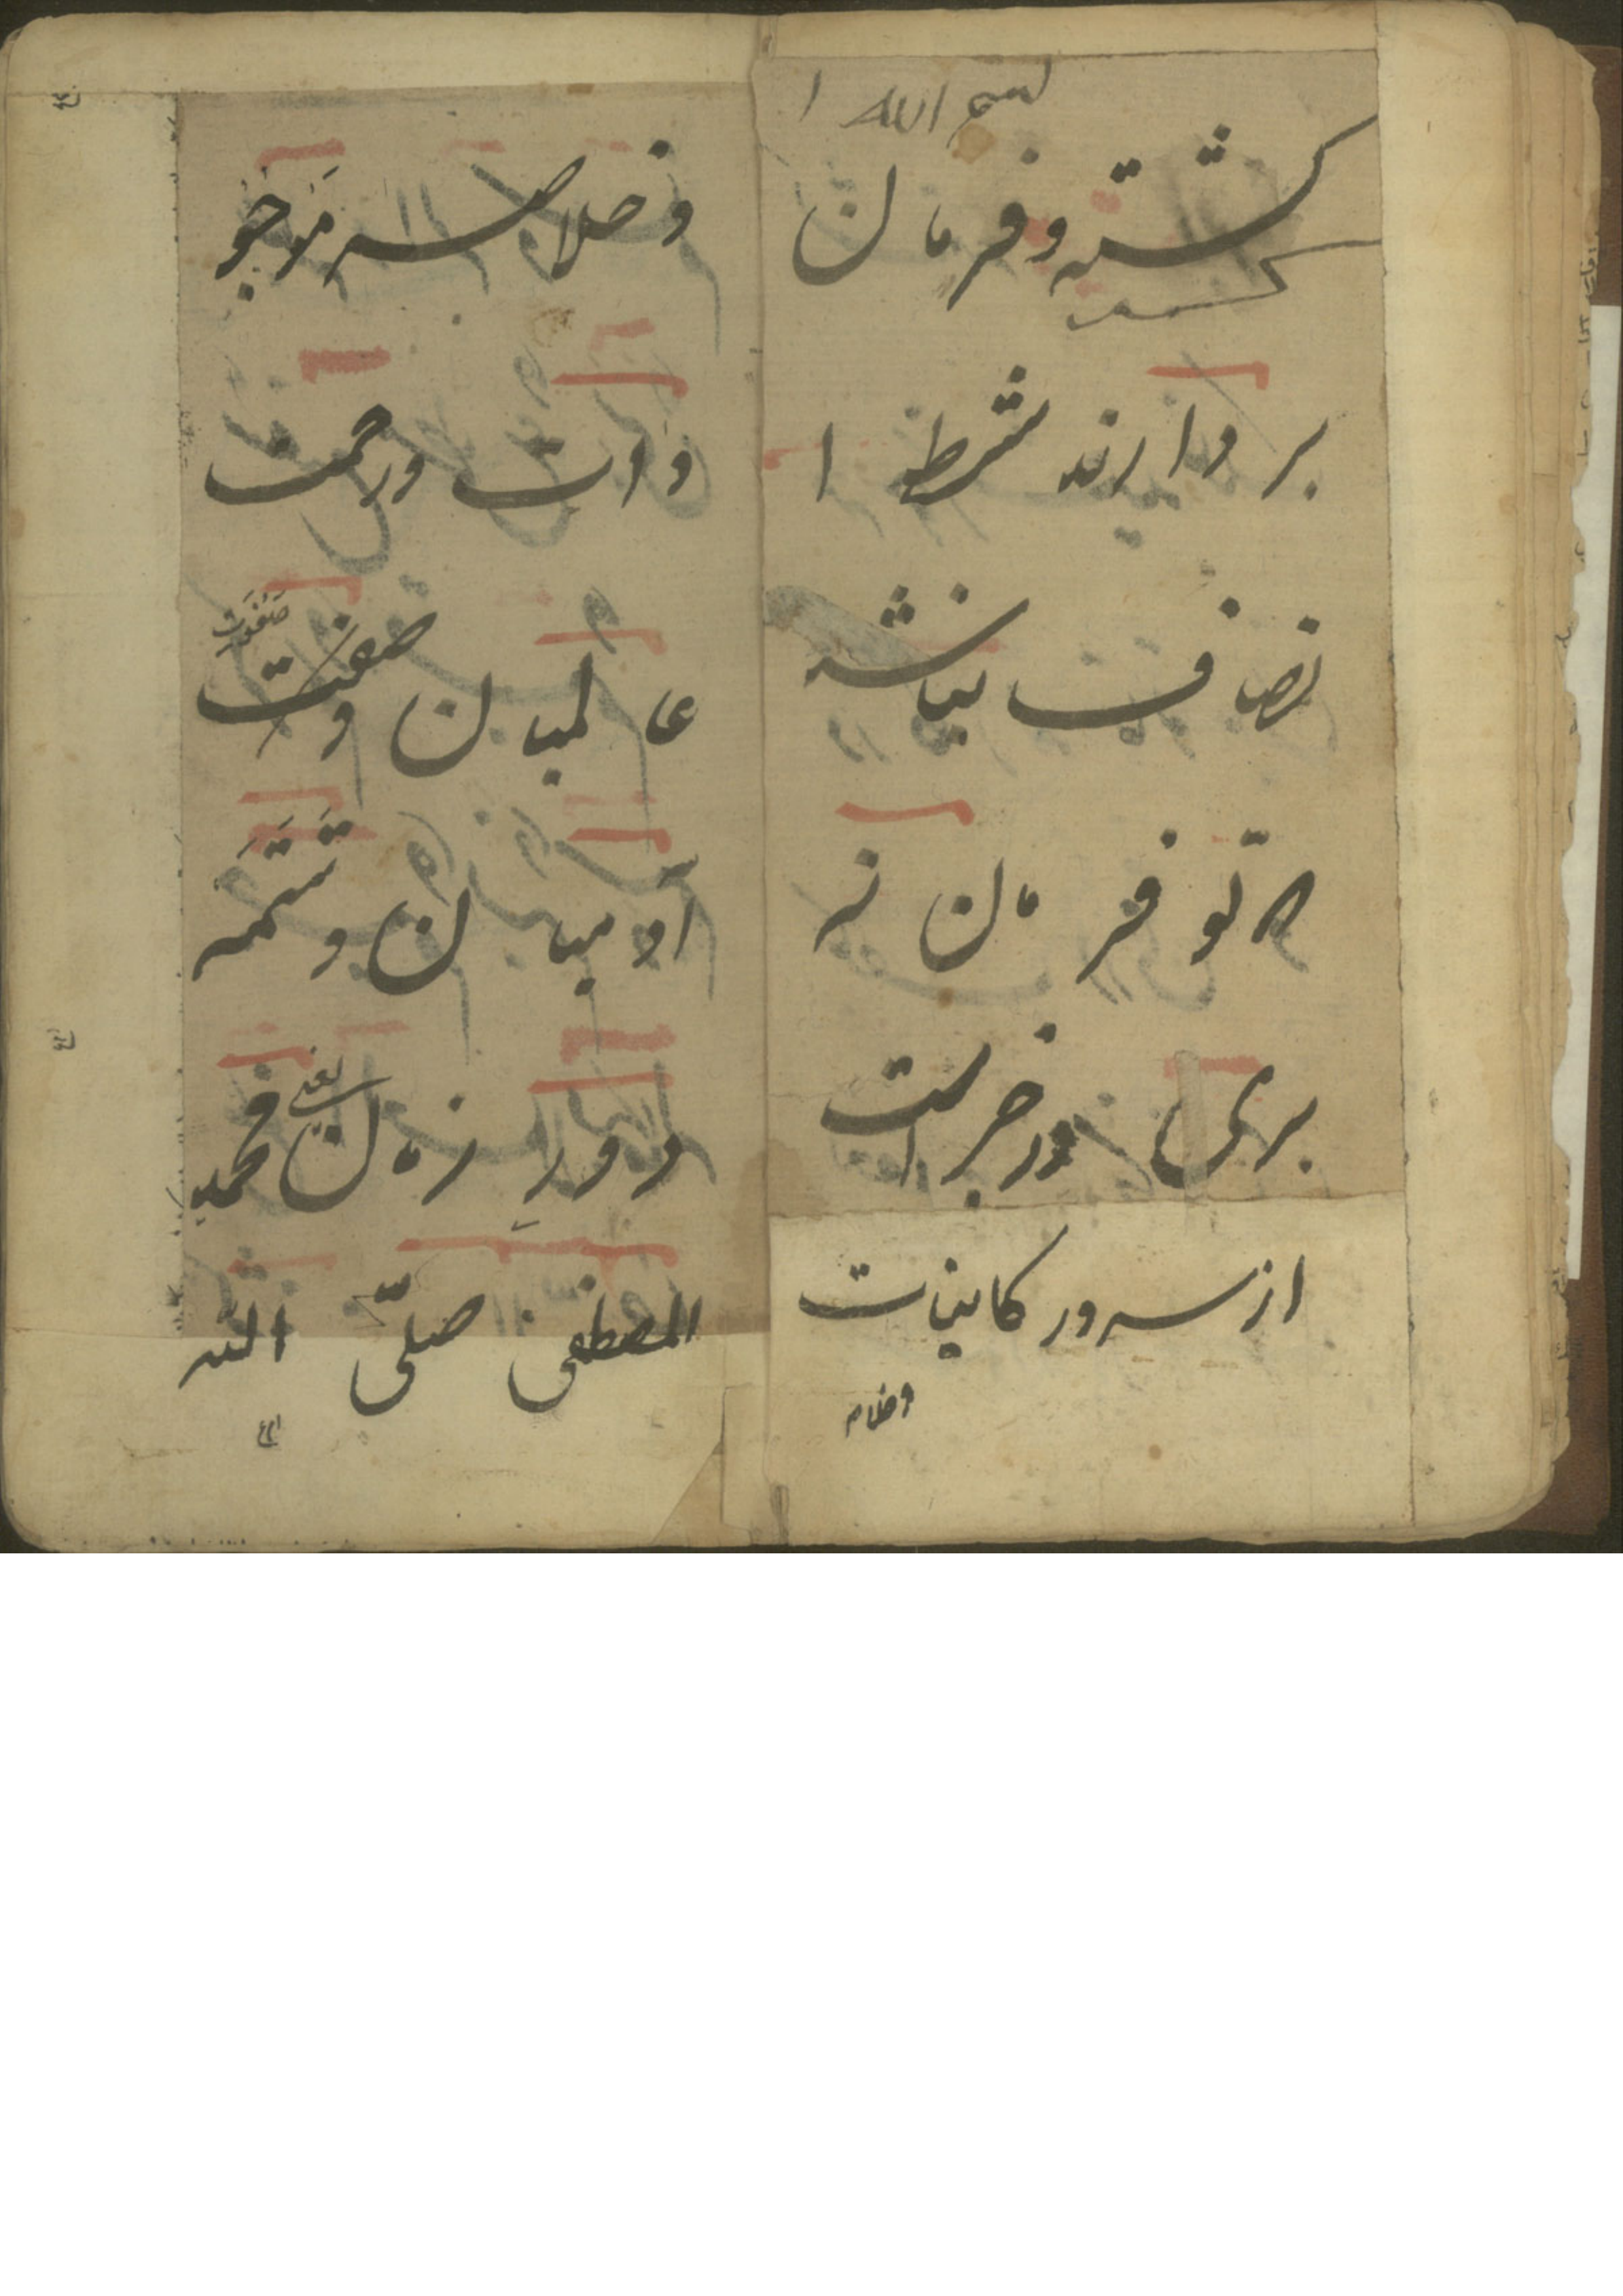 بسم الله ا
گشته و فرمان
بردارند شرط ا
نصاف نباشد
که تو فرمان نه
بری در خبر است
از سرور کاینات
وخلاصه
وخلاصه مَوجو
دات ورحمت
عالمیان وصفوت
صَفْوَت
آدمیان و تَتَمّه
دور زمان محمد
یعنی
المصطفی صلّی الله